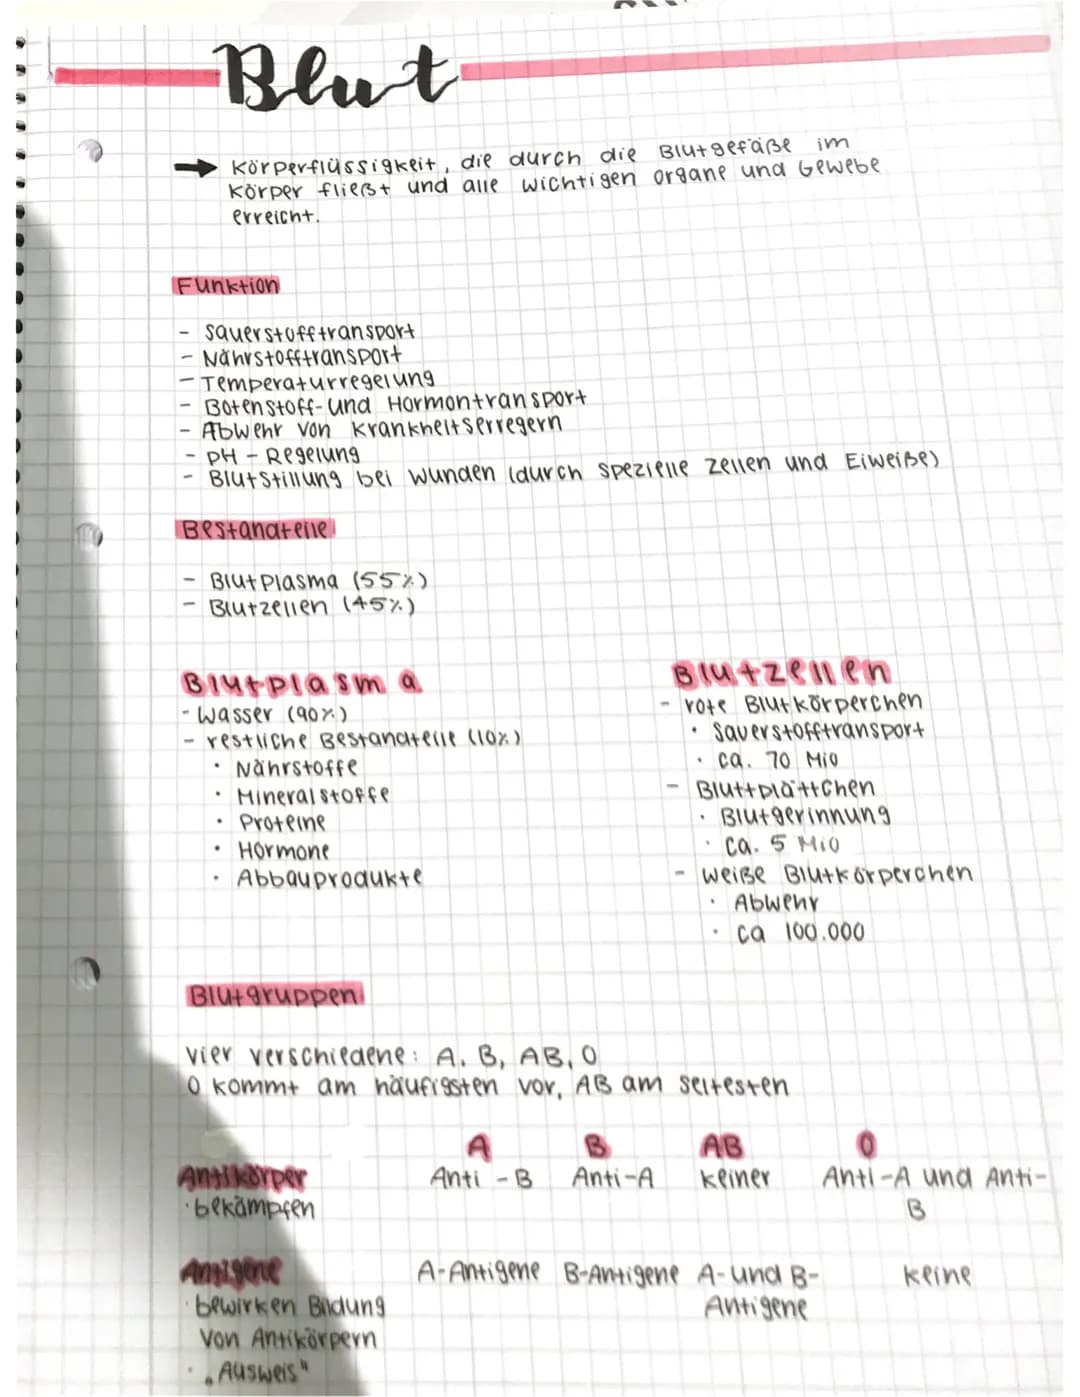 Blut
→ Körperflüssigkeit, die durch die Blutgefäße im
Körper fließt und alle wichtigen Organe und Gewebe
erreicht.
Funktion
- Sauerstofftransport
- Nährstofftransport
- Temperaturregelung
- Botenstoff- und Hormontransport
- Abwehr von Krankheitserregern
- pH - Regelung
- Blutstillung bei Wunden (durch spezielle Zellen und Eiweiße)
Bestandteile
- Blutplasma (55%)
- Blutzellen (45%)
Blutplasma
- Wasser (90%)
- restliche Bestandteile (10%)
· Nährstoffe
· Mineralstoffe
· Proteine
· Hormone
· Abbauprodukte
Blutzellen
- rote Blutkörperchen
· Sauerstofftransport
· ca. 70 Mio
- Bluttplättchen
· Blutgerinnung
· ca. 5 Mio
- weiße Blutkörperchen
· Abwehr
· ca 100.000
Blutgruppen
vier verschiedene: A, B, AB, 0
0 kommt am häufigsten vor, AB am seltesten
A B AB 0
Antikörper Anti - B Anti-A keiner Anti-A und Anti-
· bekämpfen B
Antigene A-Antigene B-Antigene A- und B- keine
· bewirken Bildung Antigene
von Antikörpern
· „Ausweis"